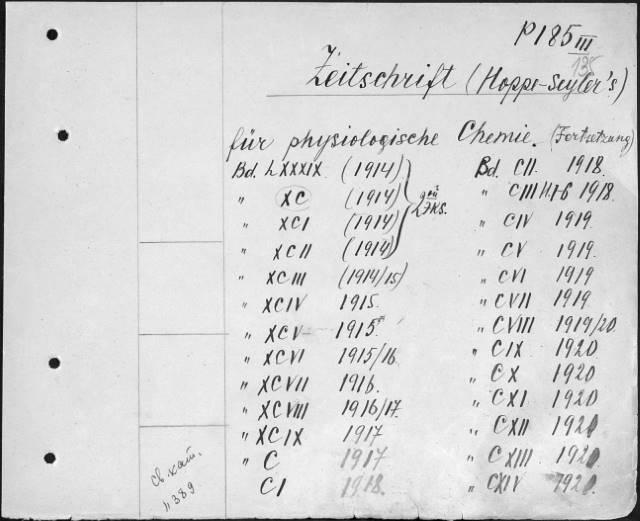 P185 III
135
Zeitschrift (Hoppe-Seyler's)
für physiologische Chemie. (Fortsetzung)
Bd. LXXXIX (1914)
" XC (1914)
" XCI (1914)
" XCII (1914)
2ой Экз.
" XCIII (1914/15)
" XCIV 1915.
" XCV 1915
" XCVI 1915/16
" XCVII 1916.
" XCVIII 1916/17.
" XCIX 1917
" C 1917
CI 1918.
Bd. CII. 1918.
" CIII 1918.
" CIV 1919.
" CV 1919.
" CVI 1919
" CVII 1919
" CVIII 1919/20.
" CIX 1920
" CX 1920
" CXI 1920
" CXII 1921
" CXIII 1921
" CXIV 1921
св. кат.
п 389